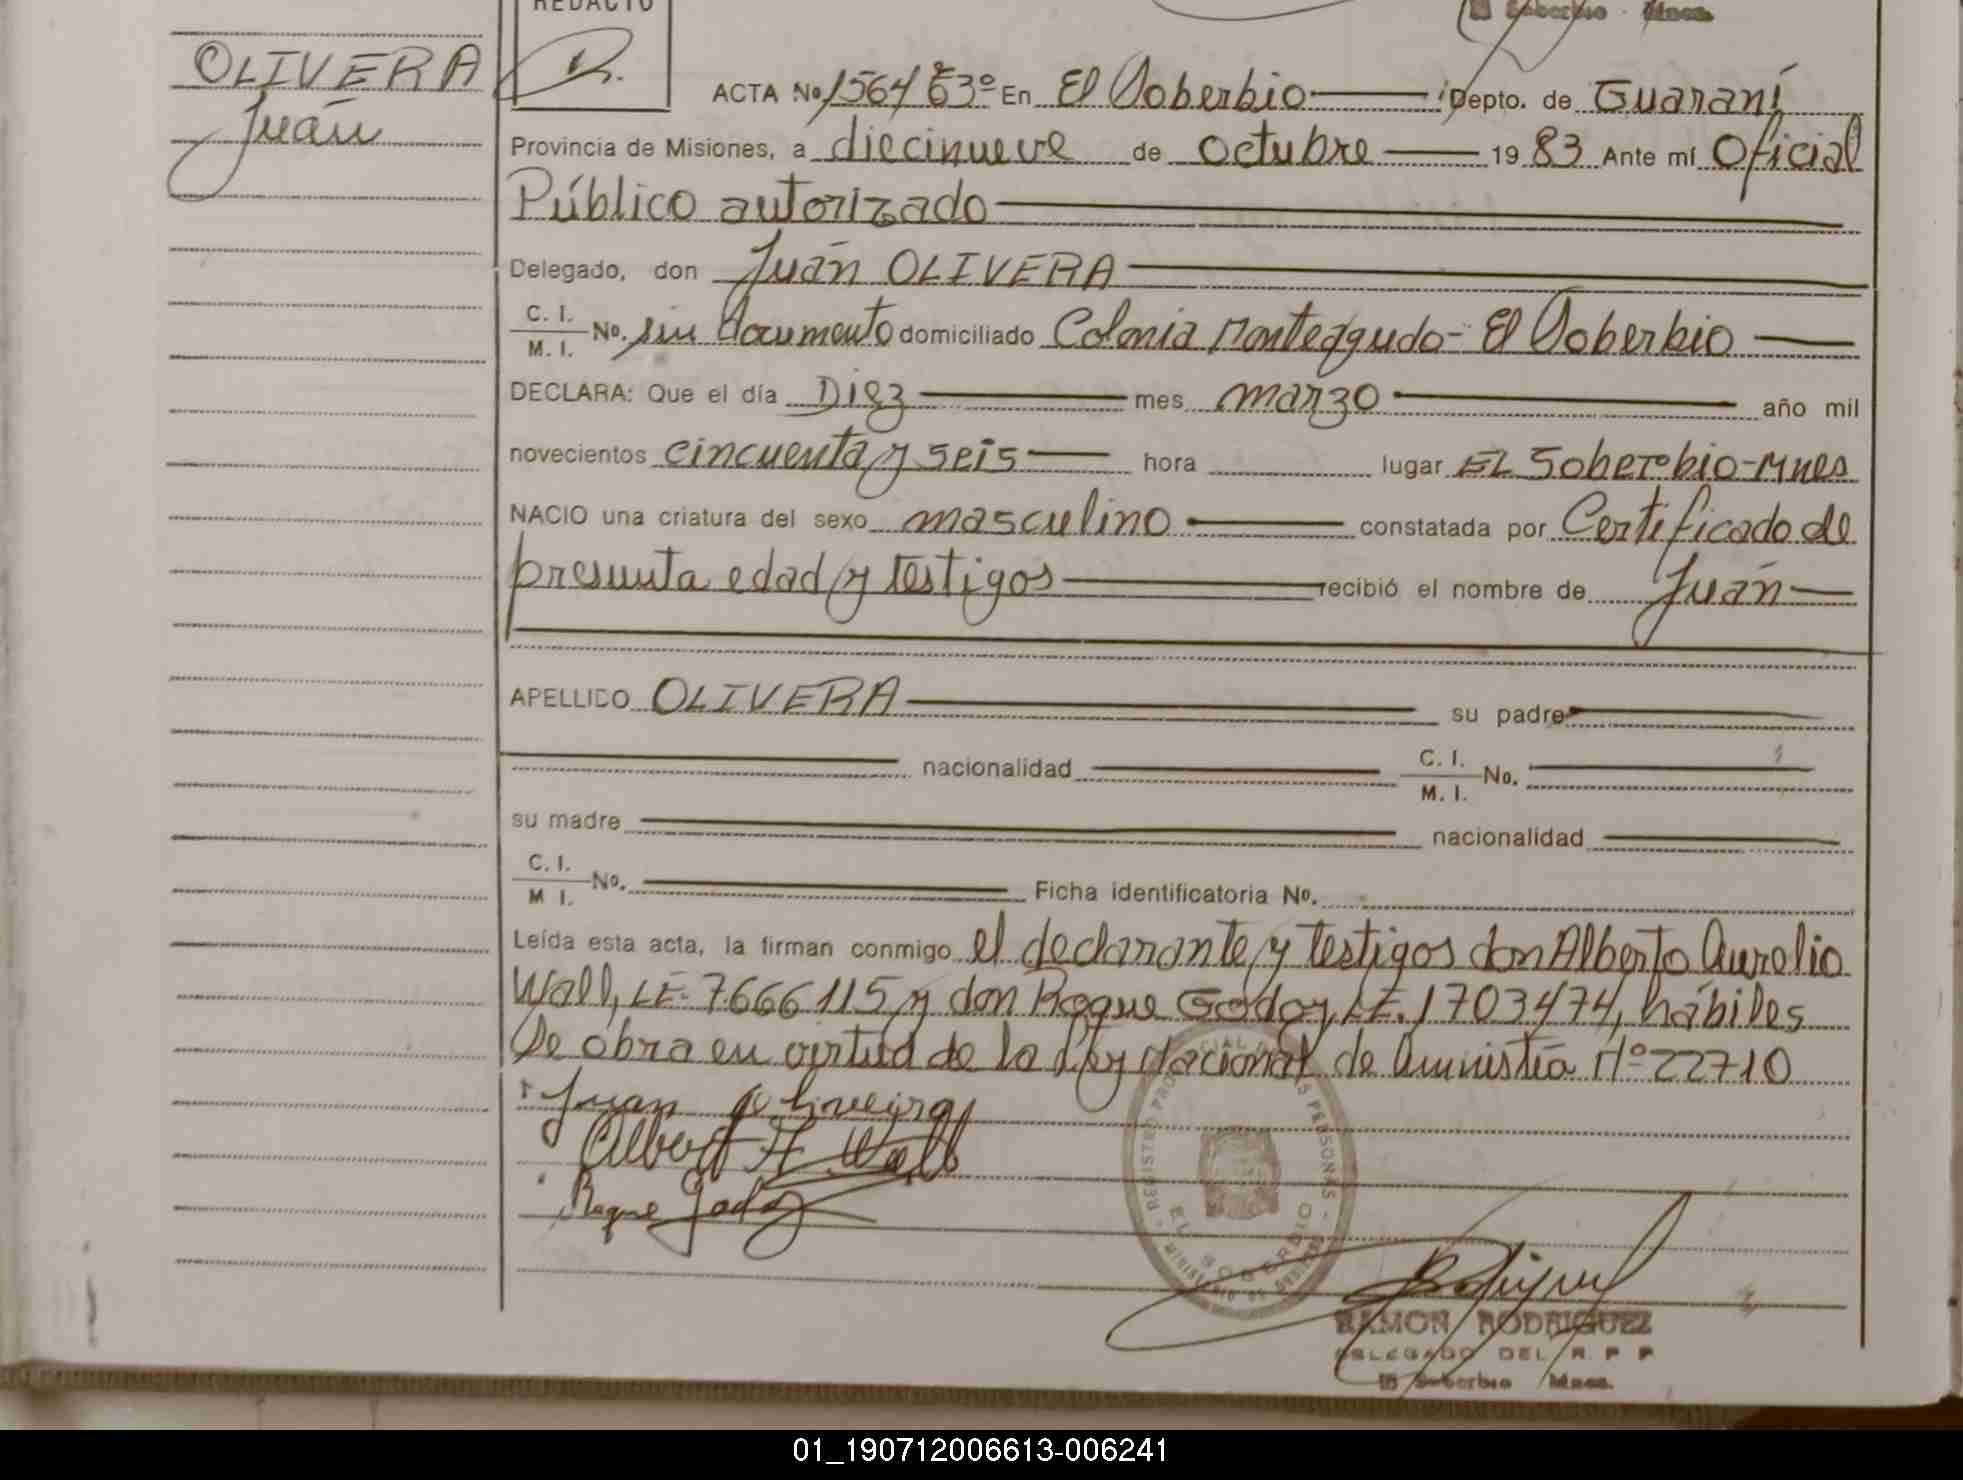 REDACTO
El Soberbio - Mnes.
OLIVERA
Juán
ACTA No 1564 E3º En El Soberbio Depto. de Guaraní
Provincia de Misiones, a diecinueve de octubre 1983 Ante mí Oficial
Público autorizado
Delegado, don Juán OLIVERA
C. I. / M. I. No. sin documento domiciliado Colonia Monteagudo - El Soberbio
DECLARA: Que el día Diez mes marzo año mil
novecientos cincuenta y seis hora lugar EL Soberbio - Mnes
NACIO una criatura del sexo masculino constatada por Certificado de
presunta edad y testigos recibió el nombre de Juán
APELLIDO OLIVERA su padre
nacionalidad C. I. / M. I. No.
su madre nacionalidad
C. I. / M I. No. Ficha identificatoria No.
Leída esta acta, la firman conmigo el declarante y testigos don Alberto Aurelio
Wall, LE- 7.666115 y don Roque Godoy, LE. 1703474, hábiles
Se obra en virtud de la Ley Nacional de Amnistía Nº 22710
Juan
Albert A. Wall
Roque Godoy
REGISTRO PROVINCIAL DE LAS PERSONAS
EL SOBERBIO
RAMON RODRIGUEZ
DELEGADO DEL R. P P
El Soberbio Mnes.
01_190712006613-006241